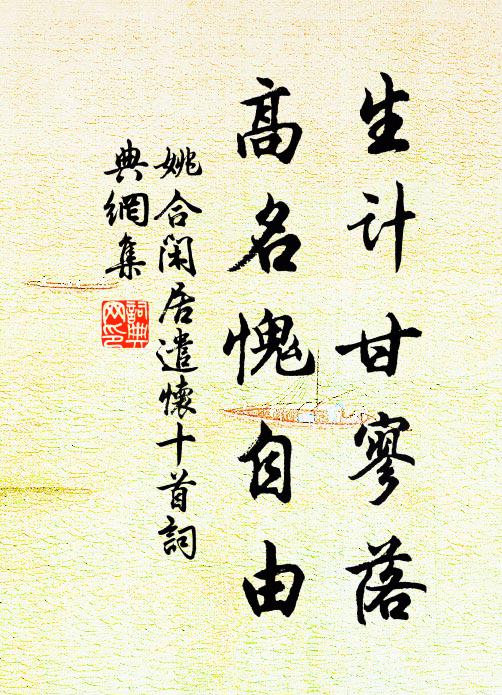 生计甘寥落
高名愧自由
姚合闲居遣怀十首詞
典網集
詞典
网印